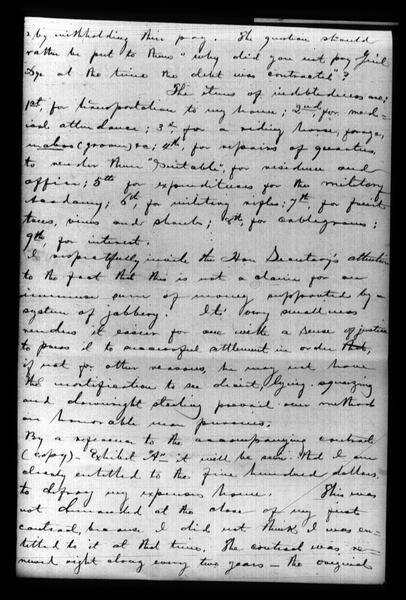 & by withholding their pay. The question should
rather be put to them "why did you not pay Genl
Dye at the time the debt was contracted"?
The items of indebtedness are;
1st, for transportation to my house; 2nd, for med-
ical attendance; 3rd for a riding horse, forage,
mabos (groom) &c; 4th, for repairs of quarters
to render them "Suitable", for residence and
office; 5th for expenditures for the military
Academy; 6th, for military rifles; 7th, for fruit
trees, vines and shrubs; 8th, for cablegrams;
9th, for interest.
I respectfully invite the Hon Secretary's attention
to the fact that this is not a claim for an
immense sum of money supported by a
system of jobbery. It's very smallness
renders it easier for one with a sense of justice
to press it to a successful settlement in order that,
if not for other reasons, he may not have
the mortification to see deceit, lying, squeezing
and downright stealing prevail over method
an honorable man pursues.
By a reference to the accompanying contract
(copy) - Exhibit "A" it will be seen that I am
clearly entitled to the five hundred dollars,
to defray my expenses home. This was
not demanded at the close of my first
contract, because I did not think I was en-
titled to it at that time. The contract was re-
newed right along every two years - the original